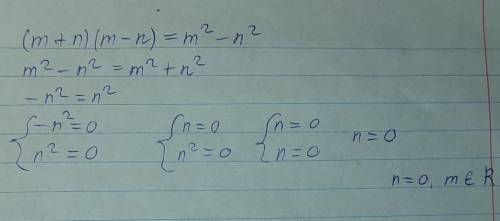 (m+n)(m-n) = m² - n²
m² - n² = m² + n²
-n² = n²
{ -n² = 0 { n = 0 { n = 0 n = 0
{ n² = 0 { n² = 0 { n = 0
n = 0, m ∈ R